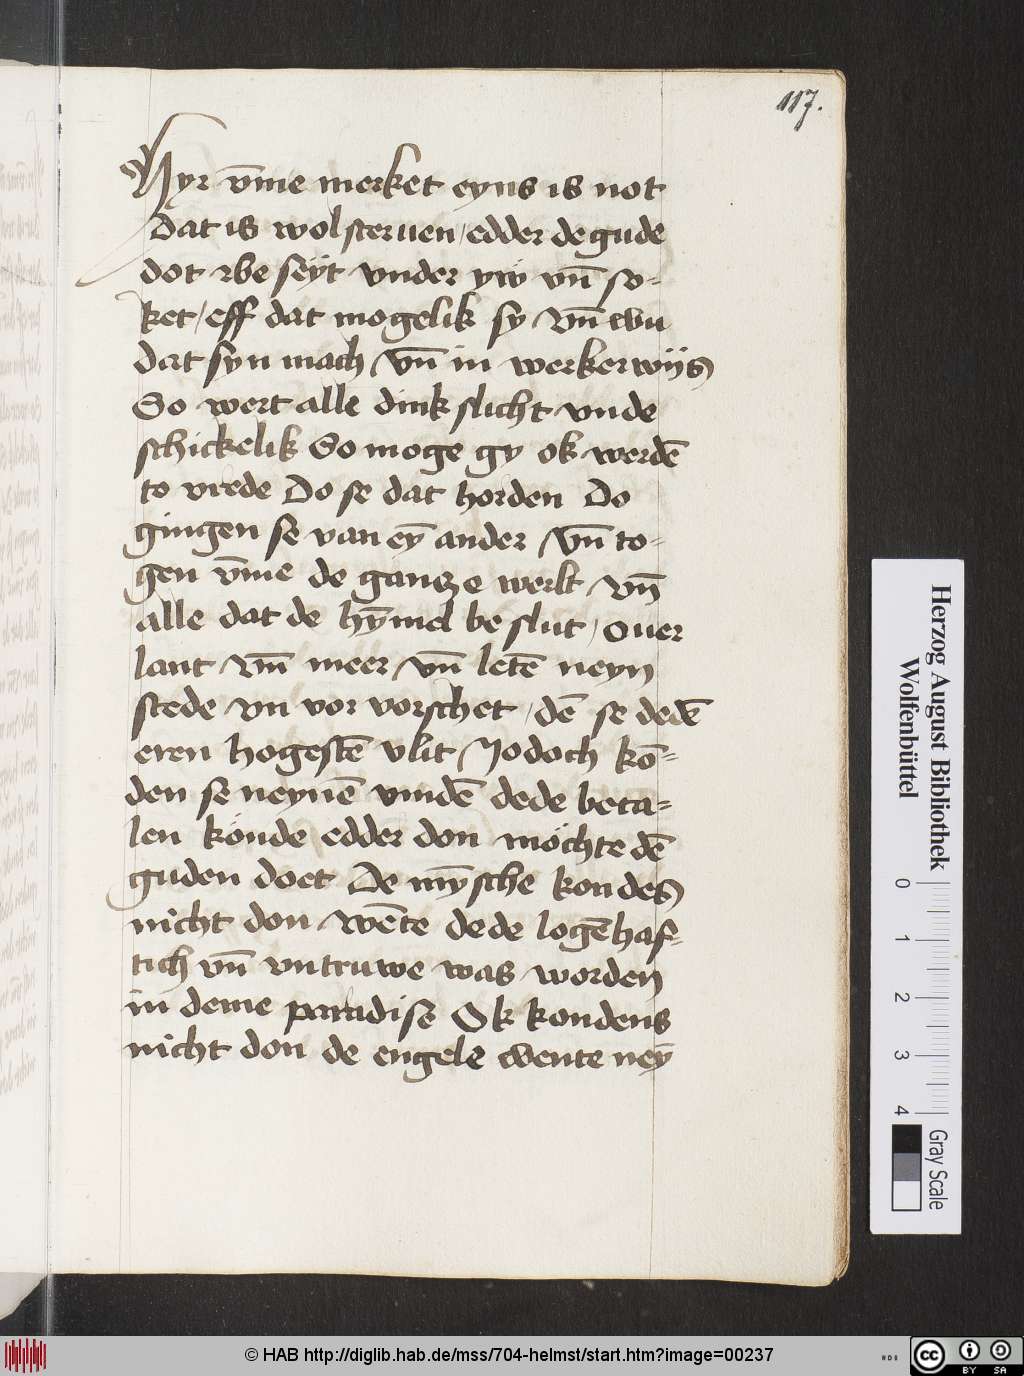 117.
Hyr v̄me merket eyns is not
Dat is wol steruen / edder de gude
dot rbe seÿt vnder yw vn̄ so-
ket / eff dat mogelik sy vm̄ wu
dat syn mach / vn̄ in werker wijs
So wert alle dink slicht vnde
schickelik So moge gy ok werdē
to vrede Do se dat horden Do
gingen se van eȳ ander / vn̄ to-
gen v̄me de gantze werlt / vn̄
alle dat de hȳmel be slut / ouer
lant vm̄ meer / vn̄ letē neyn
stede vn vor vorschet / dē se dedē
eren hogestē vlit / Jodoch kō-
den se neynē vindē dede beta-
len könde edder don möchte dē
guden doet De mȳsche kondes
nicht don / wēte dede logēhaf-
tich vn̄ vntruwe was worden
in deme paradise Ok kondens
nicht don de engele wente neȳ
Herzog August Bibliothek
Wolfenbüttel
0
1
2
3
4
Gray Scale
© HAB http://diglib.hab.de/mss/704-helmst/start.htm?image=00237
HAB
cc BY SA